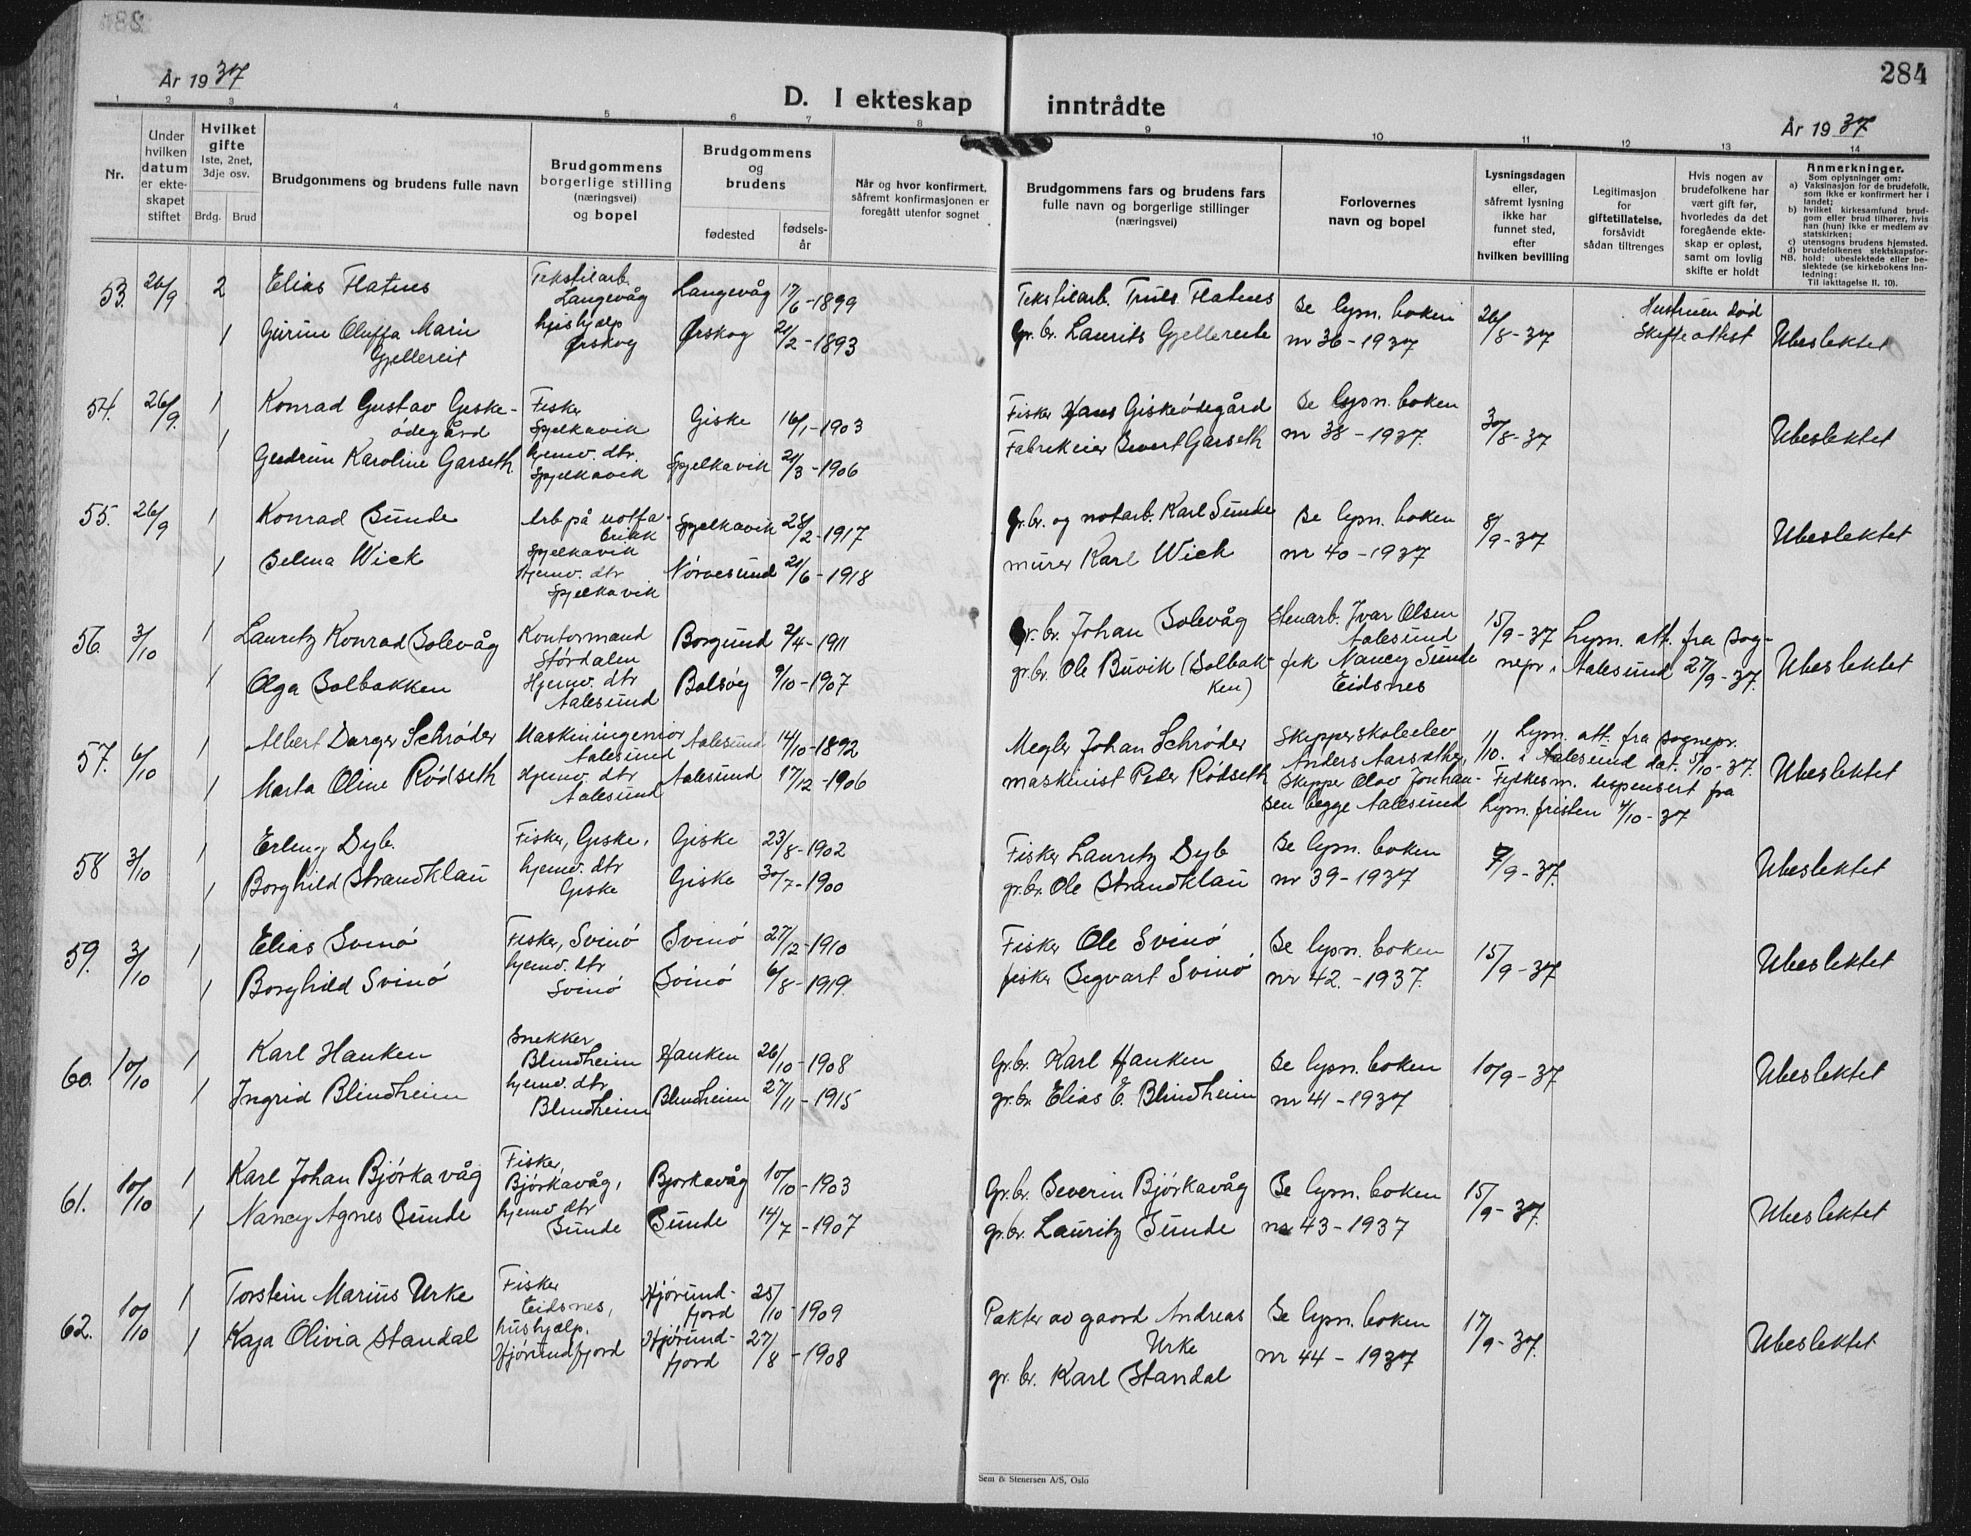 284
År 1937
D. I ekteskap inntrådte
År 1937
1 2 3 4 5 6 7 8 9 10 11 12 13 14
Nr.
Under
hvilken
datum
er ekte-
skapet
stiftet
Hvilket
gifte
1ste, 2net,
3dje osv.
Brdg. Brud
Brudgommens og brudens fulle navn
Brudgommens
borgerlige stilling
(næringsvei)
og bopel
Brudgommens
og
brudens
fødested
fødsels-
år
Når og hvor konfirmert,
såfremt konfirmasjonen er
foregått utenfor sognet
Brudgommens fars og brudens fars
fulle navn og borgerlige stillinger
(næringsvei)
Forlovernes
navn og bopel
Lysningsdagen
eller,
såfremt lysning
ikke har
funnet sted,
efter
hvilken bevilling
Legitimasjon
for
giftetillatelse,
forsåvidt
sådan tiltrenges
Hvis nogen av
brudefolkene har
vært gift før,
hvorledes da det
foregående ekte-
skap er opløst,
samt om lovlig
skifte er holdt
Anmerkninger.
Som oplysninger om:
a) Vaksinasjon for de brudefolk,
som ikke er konfirmert her i
landet;
b) hvilket kirkesamfund brud-
gom eller brud tilhører, hvis
han (hun) ikke er medlem av
statskirken;
c) utensogns brudens hjemsted.
d) brudefolkenes slektskapsfor-
NB. hold: ubeslektede eller be-
slektede (se kirkebokens inn-
ledning:
Til iakttagelse II. 10).
53. 26/9 2 Elias Flatnes Tekstilarb. Langevåg Langevåg 17/6-1899 Tekstilarb. Truls Flatnes Se lysn. boken 26/8-37 Hustruen død
1 Gurine Oluffa Marie Gjellereit hushjælp Ørskog Ørskog 21/2-1893 Gr. br. Laurits Gjellereite nr 36-1937 Skifteattest Ubeslektet
54. 26/9. 1 Konrad Gustav Giske-ødegård Fisker Spjelkavik Giske 16/1-1903 Fisker Hans Giskeødegård Se lysn. boken 30/8-37
1 Gudrun Karoline Garseth hjemv. dtr. Spjelkavik Spjelkavik 21/3-1906 Fabrikeier Sivert Garseth nr 38-1937. Ubeslektet
55. 26/9 1 Konrad Sunde Arb på notfabrikk Spjelkavik Spjelkavik 28/2-1917 Gr. br. og notarb. Karl Sunde Se lysn. boken 8/9-37
1 Selma Wick Hjemv. dtr Spjelkavik Nørvesund 21/6-1918 murer Karl Wick nr 40-1937 Ubeslektet
56. 3/10 1 Lauritz Konrad Solevåg Kontormand Størdalen Borgund 2/4-1911 Gr. br. Johan Solevåg Stenarb. Ivar Olsen Aalesund 15/9-37 Lysn. att. fra sog-
1 Olga Solbakken Hjemv. dtr Aalesund Bolsøy 9/10-1907 gr. br. Ole Buvik (Solbakken) frk Nancy Sunde Eidsnes nepr i Aalesund 27/9-37. Ubeslektet
57. 6/10 1 Albert Darger Schrøder Maskiningeniør Aalesund Aalesund 14/10-1892 Megler Johan Schrøder Skipperskoleelev Anders Aarsæther, 1/10. Lysn. att. fra sognepr. i Aalesund dat. 5/10-37.
1 Marta Oline Rødseth Hjemv. dtr Aalesund Aalesund 17/12-1906 maskinist Peder Rødseth Skipper Olav Johansen begge Aalesund Fylkesm. dispensert fra lysn. fristen 4/10-37 Ubeslektet
58 3/10 1 Erling Dyb. Fisker, Giske, Giske 23/8-1902 Fisker Lauritz Dyb Se lysn. boken 7/9-37.
1 Borghild Strandklau hjemv. dtr Giske Giske 30/7-1900 gr. br. Ole Strandklau nr 39-1937 Ubeslektet
59. 3/10 1 Elias Svinø Fisker, Svinø Svinø 27/12-1910 Fisker Ole Svinø Se lysn. boken 15/9-37
1 Borghild Svinø hjemv. dtr Svinø Svinø 6/8-1919. fisker Segvart Svinø nr 42.-1937. Ubeslektet
60. 10/10 1 Karl Hauken Snekker Blindheim Hauken 26/10-1908 Gr. br. Karl Hauken Se lysn. boken 10/9-37
1 Ingrid Blindheim hjemv. dtr Blindheim Blindheim 27/11-1915 gr. br. Elias E. Blindheim nr 41-1937 Ubeslektet
61. 10/10 1 Karl Johan Bjørkavåg Fisker, Bjørkavåg, Bjørkavåg 10/10-1903 Gr. br. Severin Bjørkavåg Se lysn. boken 15/9-37.
1 Nancy Agnes Sunde hjemv dtr Sunde Sunde 14/7-1907 gr. br. Lauritz Sunde nr 43-1937 Ubeslektet
62. 10/10 1 Torstein Marius Urke Fisker Eidsnes, Hjørundfjord 25/10-1909 Pakter av gaard Andreas Urke Se lysn. boken 17/9-37.
1 Kaja Olivia Standal hushjælp. Hjørundfjord Hjørundfjord 27/8-1908 gr. br. Karl Standal nr 44-1937 Ubeslektet
Sem & Stenersen A/S, Oslo